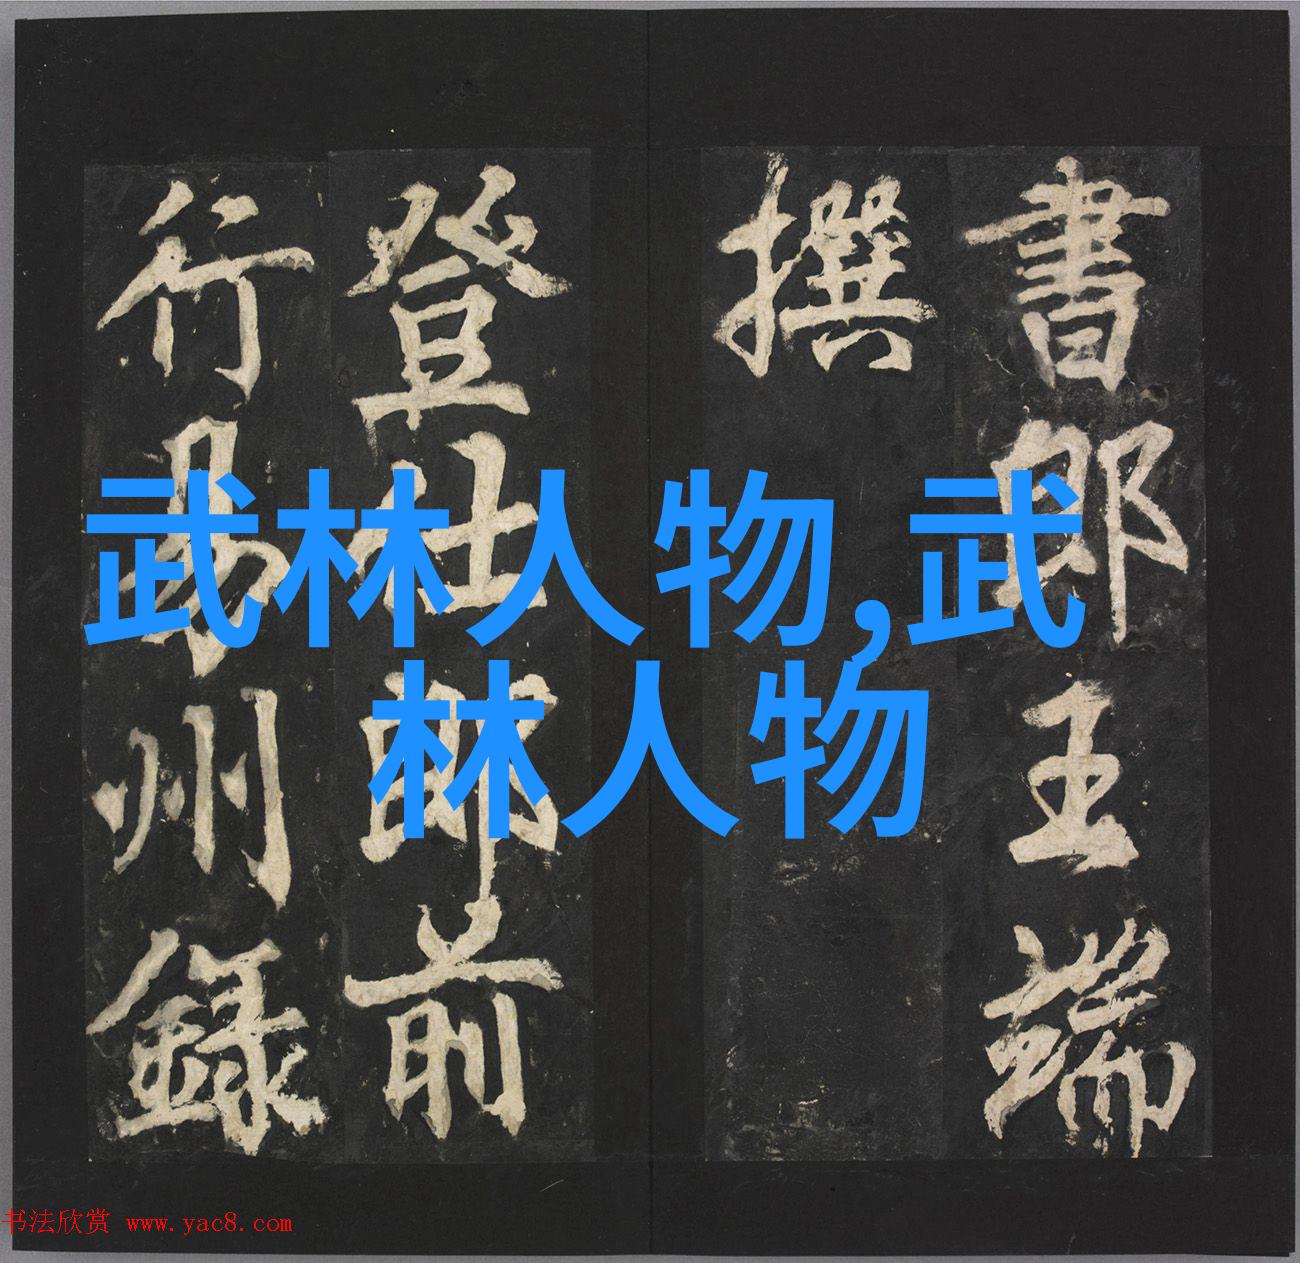 書郎王端
撰
登仕郎前
行易州錄
武林人物,武
林人物
书法欣赏 www.yac8.com